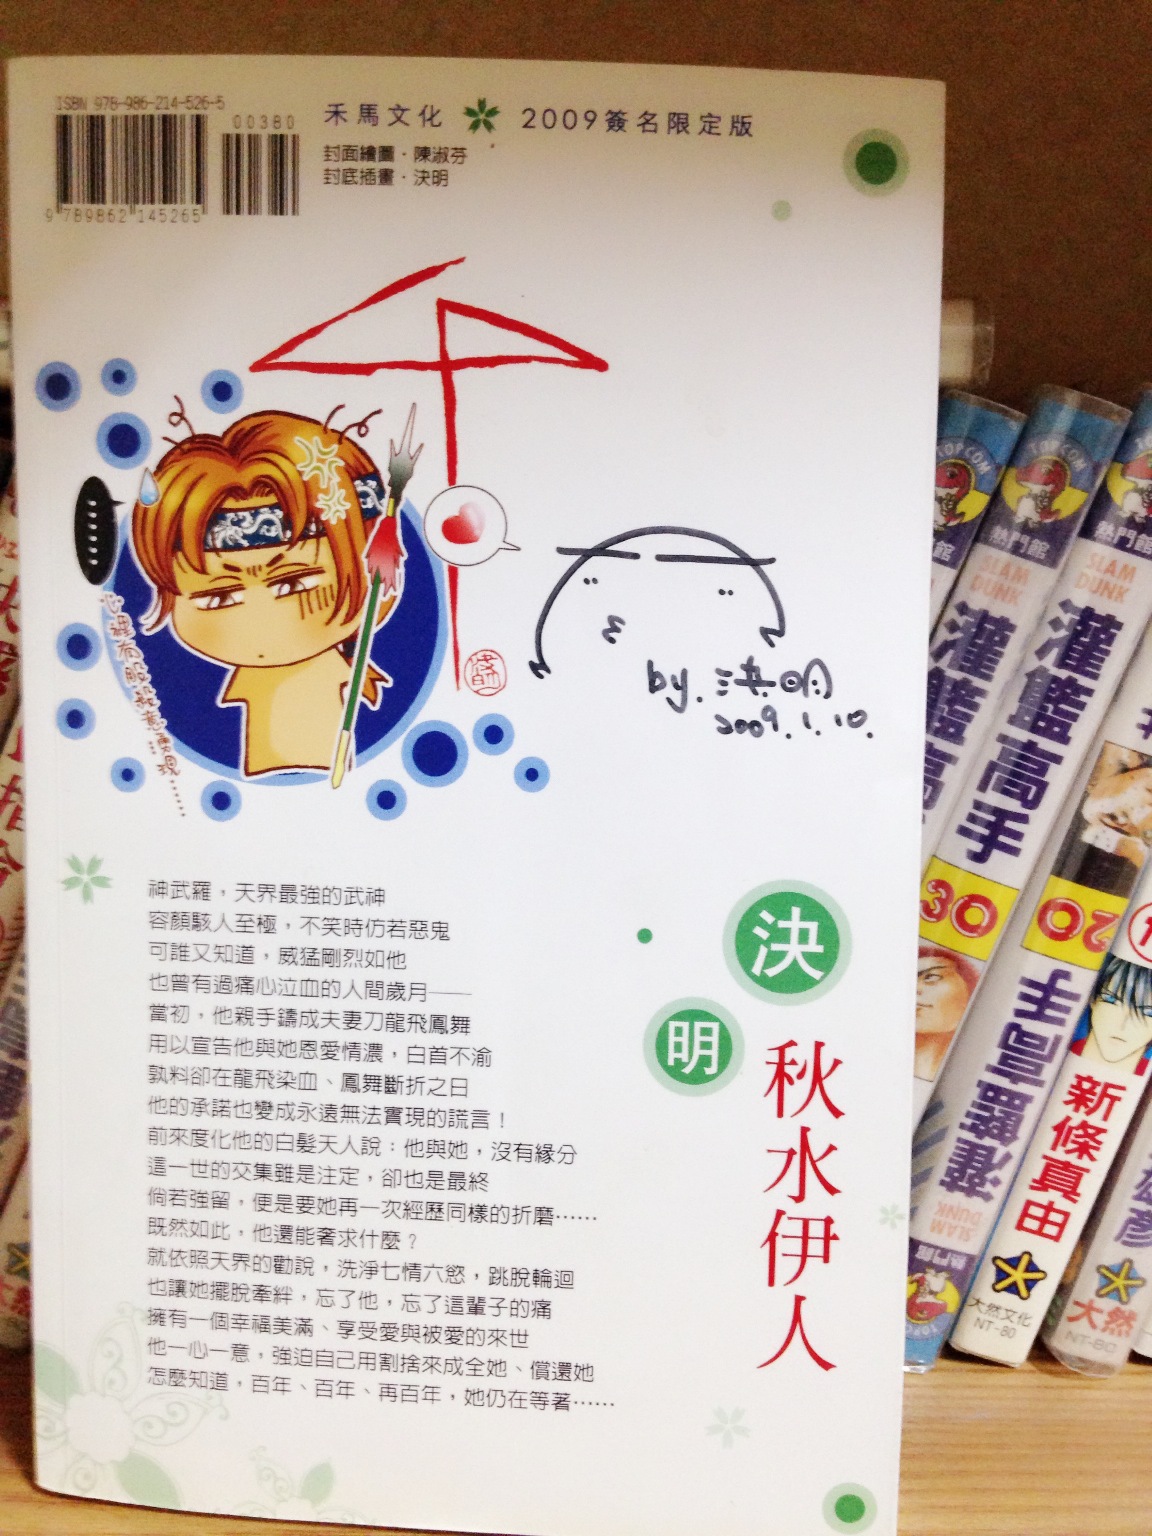 ISBN 978-986-214-526-5
00380
9 789862 145265
禾馬文化 2009簽名限定版
封面繪圖·陳淑芬
封底插畫·決明
心裡有股殺意勇現……
by.決明
2009.1.10.
神武羅，天界最強的武神
容顏駭人至極，不笑時仿若惡鬼
可誰又知道，威猛剛烈如他
也曾有過痛心泣血的人間歲月——
當初，他親手鑄成夫妻刀龍飛鳳舞
用以宣告他與她恩愛情濃，白首不渝
孰料卻在龍飛染血、鳳舞斷折之日
他的承諾也變成永遠無法實現的謊言！
前來度化他的白髮天人說：他與她，沒有緣分
這一世的交集雖是注定，卻也是最終
倘若強留，便是要她再一次經歷同樣的折磨……
既然如此，他還能奢求什麼？
就依照天界的勸說，洗淨七情六慾，跳脫輪迴
也讓她擺脫牽絆，忘了他，忘了這輩子的痛
擁有一個幸福美滿、享受愛與被愛的來世
他一心一意，強迫自己用割捨來成全她、償還她
怎麼知道，百年、百年、再百年，她仍在等著……
決明
秋水伊人
TOPCOM
熱門館
SLAM DUNK
灌籃高
30
TOPCOM
熱門館
SLAM DUNK
灌籃高手
20
灌籃高手
SLAM DUNK
熱門館
新條真由
大然文化
NT-80
熱門館
大然
NT-80